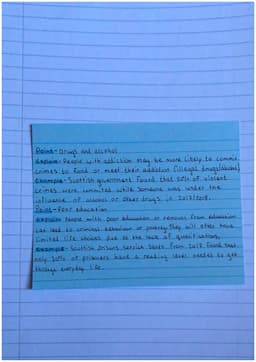 Point- Drugs and alcohol
Explain- People with addiction may be more likely to commit
crimes to fund or meet their addiction (illegal drugs/abuse)
Example- Scottish government found that 50% of violent
crimes were commited while someone was under the
influence of alcohol or other drugs in 2017/2018.
Point- Poor education
Explain- People with poor education or removal from education
can lead to criminal behaviour or poverty. They will often have
limited life choices due to the lack of qualifications.
Example- Scottish prisons service survey from 2018 found that
only 30% of prisoners have a reading level needed to get
through everyday life.